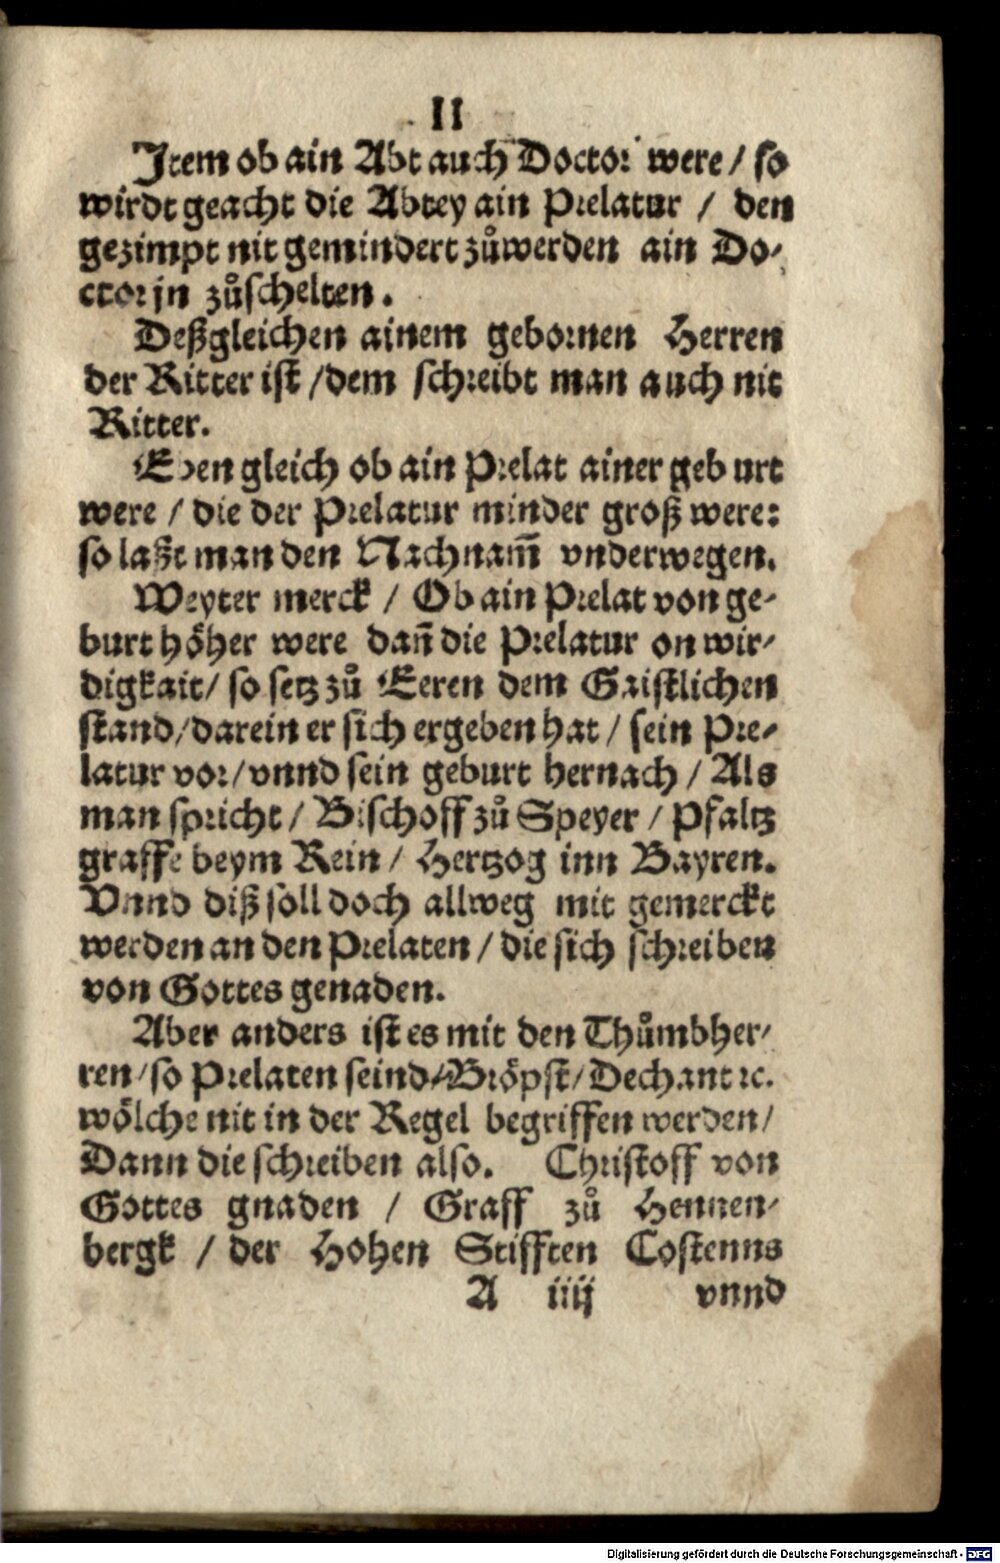 II
Jtem ob ain Abt auch Doctor were / so
wirdt geacht die Abtey ain Prelatur / den
gezimpt nit gemindert zůwerden ain Do-
ctorjn zůschelten.
Deßgleichen ainem gebornen Herren
der Ritter ist /dem schreibt man auch nit
Ritter.
Eben gleich ob ain Prelat ainer geburt
were / die der Prelatur minder groß were:
so laßt man den Nachnam̃ vnderwegen.
Weyter merck / Ob ain Prelat von ge-
burt höher were dañ die Prelatur on wir-
digkait/ so setz zů Eeren dem Gaistlichen
stand/darein er sich ergeben hat / sein Pre-
latur vor/vnnd sein geburt hernach / Als
man spricht / Bischoff zů Speyer / Pfaltz
graffe beym Rein / Hertzog inn Bayren.
Vnnd diß soll doch allweg mit gemerckt
werden an den Prelaten / die sich schreiben
von Gottes genaden.
Aber anders ist es mit den Thůmbher-
ren/so Prelaten seind/Bröpst/Dechant ꝛc.
wölche nit in der Regel begriffen werden/
Dann die schreiben also. Christoff von
Gottes gnaden / Graff zů Hennen-
bergk / der Hohen Stifften Costenns
A iiij vnnd
Digitalisierung gefördert durch die Deutsche Forschungsgemeinschaft - DFG